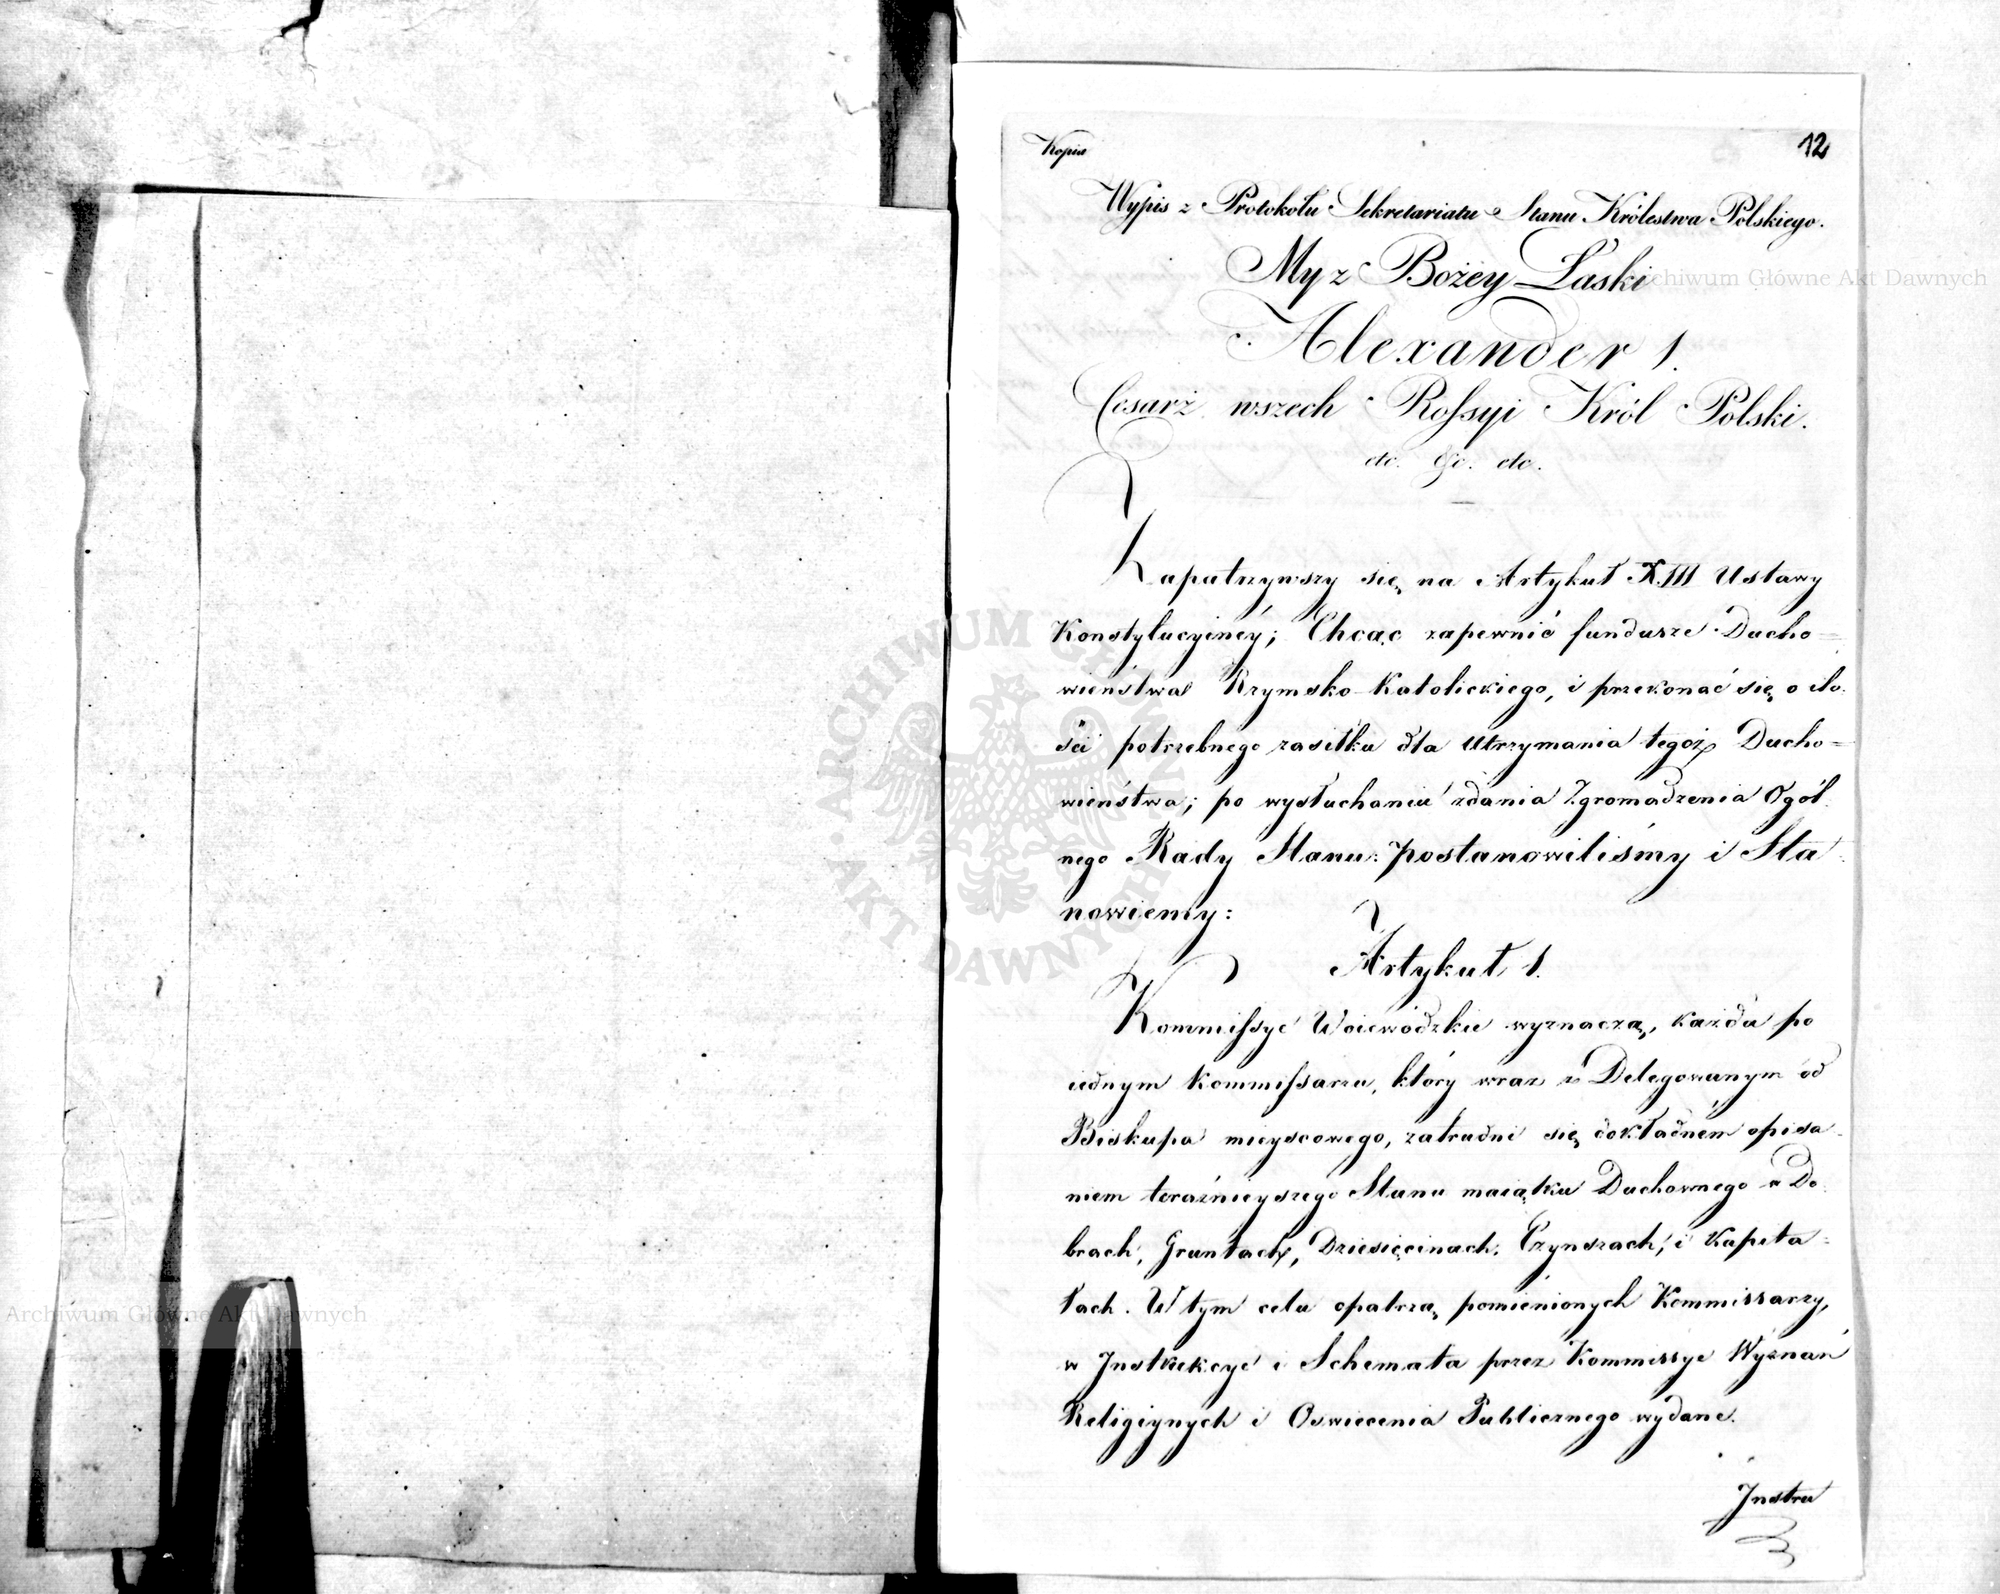 Kopia
12
Wypis z Protokołu Sekretariatu Stanu Królestwa Polskiego.
My z Bożey Łaski
Alexander 1.
Cesarz wszech Rossyi Król Polski.
etc. &c. etc.
Zapatrzywszy się na Artykuł XIII Ustawy
Konstytucyiney; Chcąc zapewnić fundusze Ducho=
wieństwa Rzymsko-Katolickiego, i przekonać się o ilo.
ści potrzebnego zasiłku dla utrzymania tegoż Ducho=
wieństwa; po wysłuchaniu zdania Zgromadzenia Ogól.
nego Rady Stanu: postanowiliśmy i Sta
nowiemy:
Artykuł 1.
Kommissye Woiewódzkie wyznaczą, każda po
iednym Kommissarzu, który wraz z Delegowanym od
Biskupa mieyscowego, zatrudni się dokładném opisa-
niem teraźnieyszego Stanu maiątku Duchownego w Do.
brach, Gruntach, Dziesięcinach, Czynszach, i Kapita=
łach. W tym celu opatrzą pomienionych Kommissarzy,
w Instrukcye i Schemata przez Kommissye Wyznań
Religiynych i Oswiecenia Publicznego wydane.
Instru
Archiwum Główne Akt Dawnych
Archiwum Główne Akt Dawnych